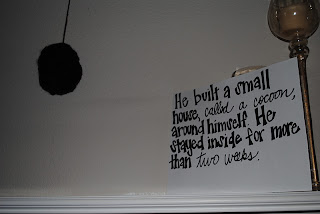 He built a small
house, called a cocoon,
around himself. He
stayed inside for more
than two weeks.